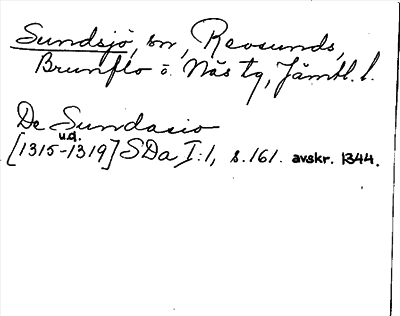 Sundsjö, sn, Revsunds,
Brunflo o. Näs tg, Jämtl. l.
De Sundasio
u.d.
[1315-1319] SDa I:1, s. 161. avskr. 1344.